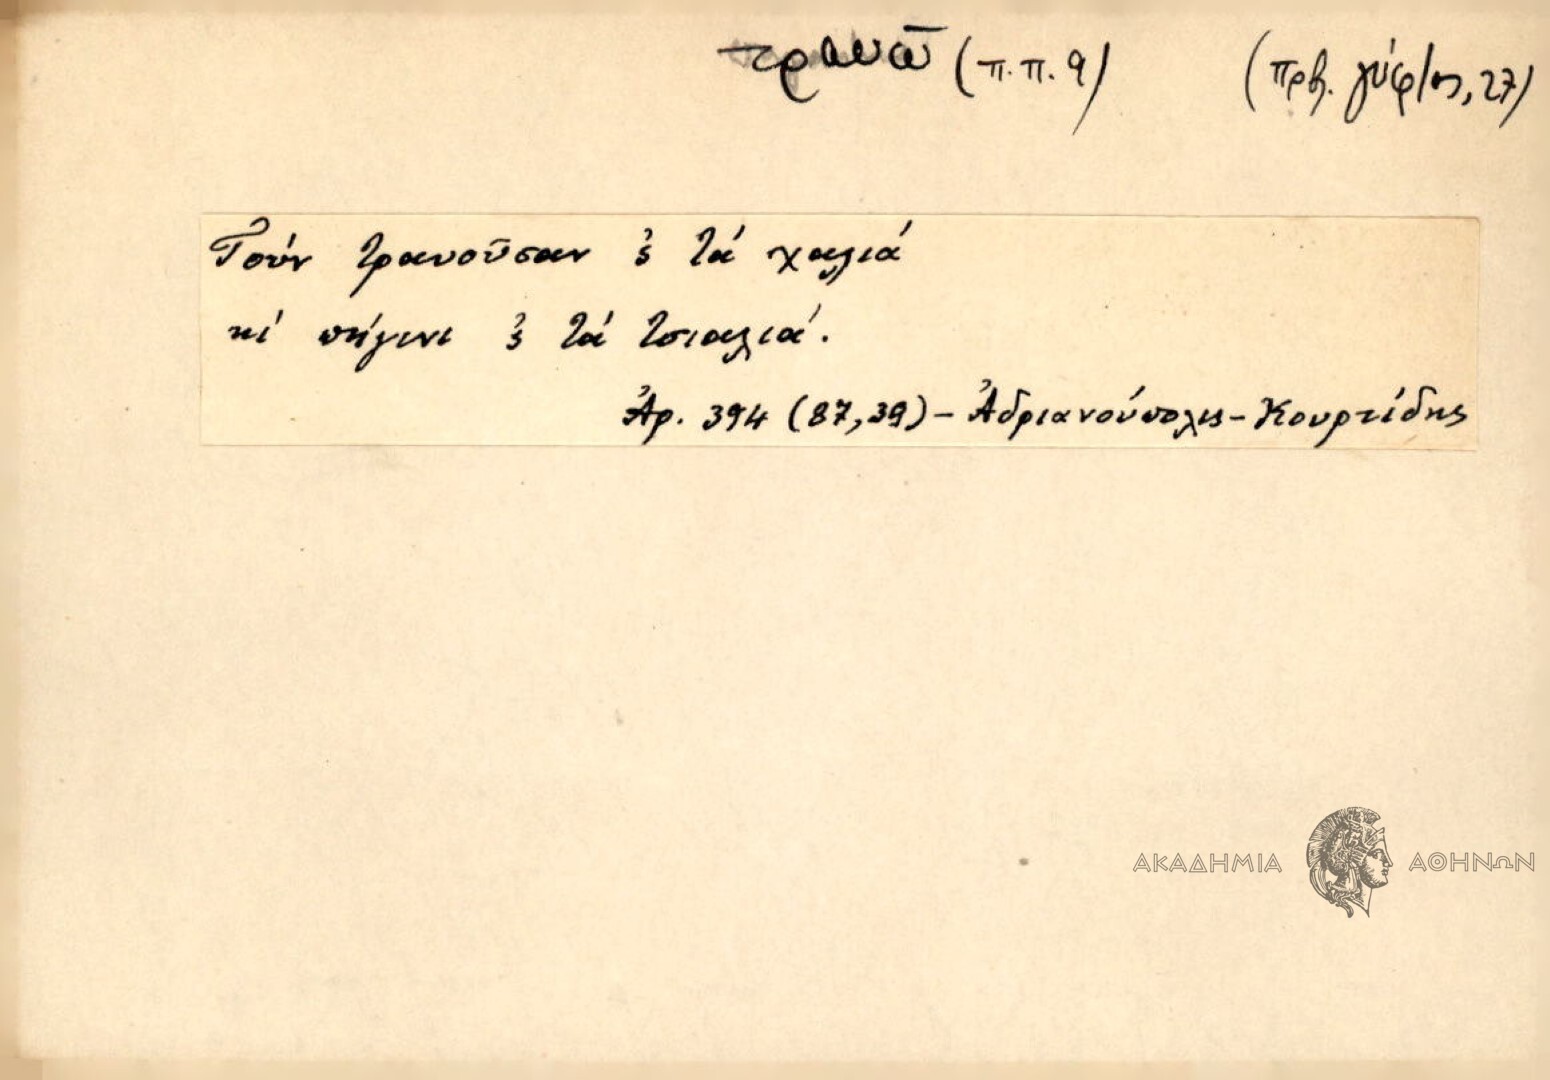 τραυῶ (π.π. 9) (πρβ. γύφτος, 27)
Τούν τραυοῦσαν 'ς τά χαλιά
κί πήγινι 'ς τά τσιαλιά.
Ἀρ. 394 (87,39) – Ἀδριανούπολις – Κουρτίδης
ΑΚΑΔΗΜΙΑ ΑΘΗΝΩΝ